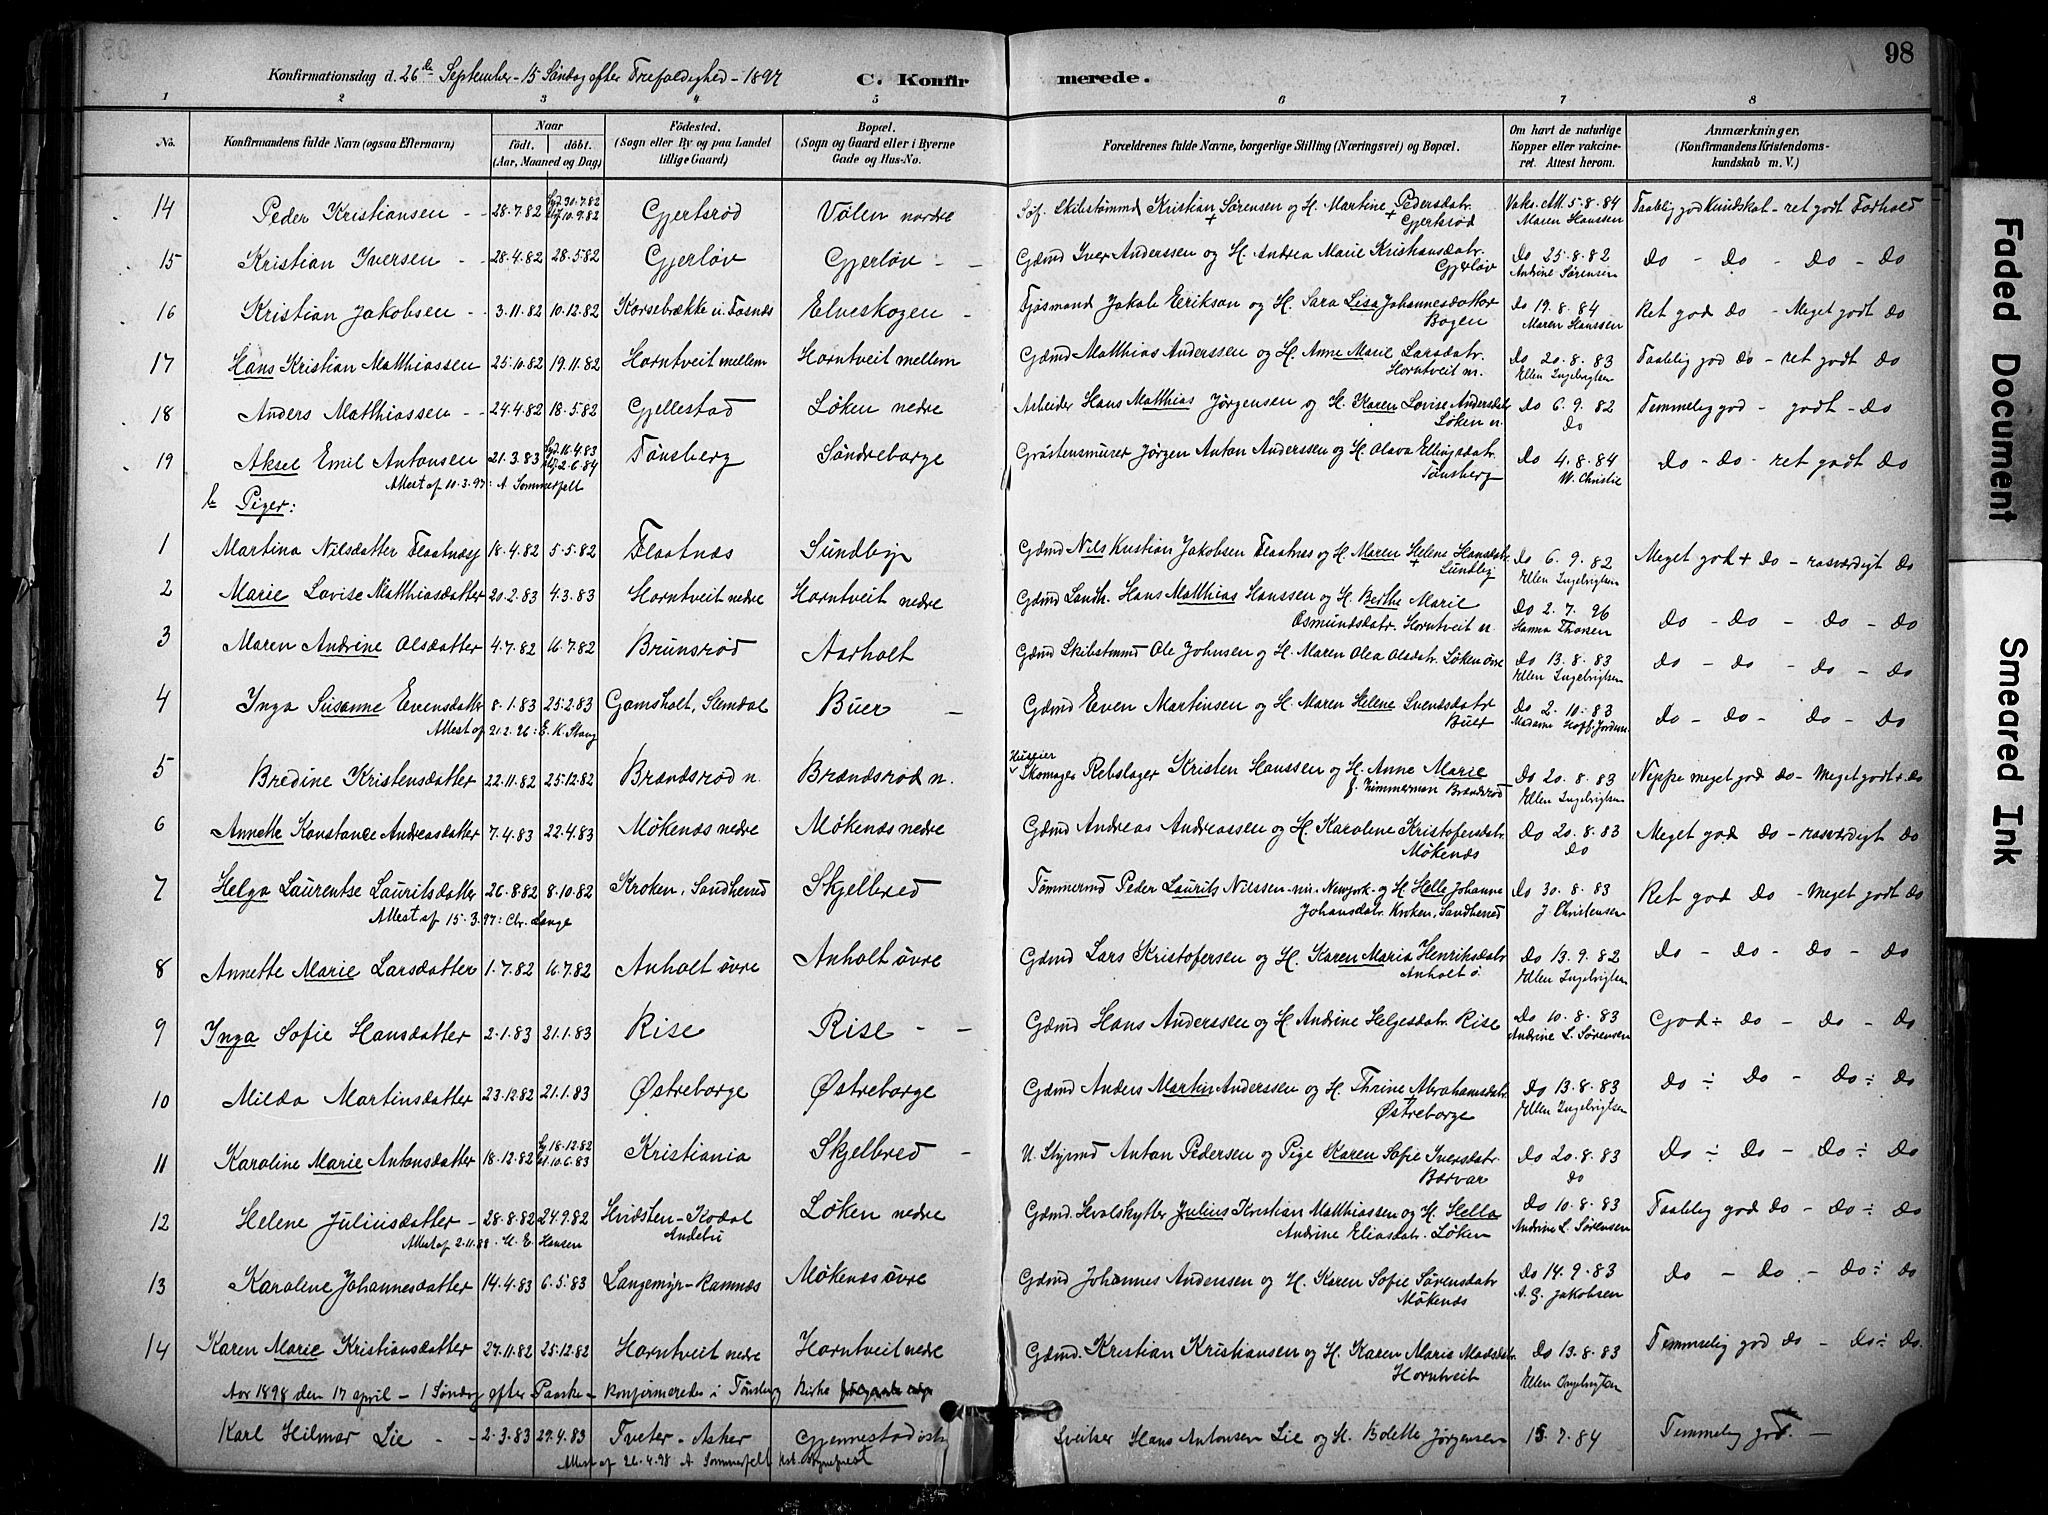 98
Konfirmationsdag d. 26de September - 15 Søndag efter Trefoldighed - 1897 C. Konfirmerede.
1 2 3 4 5 6 7 8
No. Konfirmandens fulde Navn (ogsaa Efternavn) Naar født. døbt. (Aar, Maaned og Dag) Födested. (Sogn eller By og paa Landet tillige Gaard) Bopæl. (Sogn og Gaard eller i Byerne Gade og Hus-No. Forældrenes fulde Navne, borgerlige Stilling (Næringsvei) og Bopæl. Om havt de naturlige Kopper eller vakcineret. Attest herom. Anmærkninger. (Konfirmandens Kristendomskundskab m. V.)
14 Peder Kristiansen - - 28.7.82 30.7.82 10.9.82 Gjertsrød Völen nordre Skibstømmd Kristian Sørensen og H. Martine Pedersdatr. Gjertsrød Vaks. Att. 5.8.84 Maren Hanssen Taalelig god Kundskab - ret godt Forhold
15 Kristian Iversen - - 28.4.82 28.5.82 Gjerløv Gjerløv - - Gdmd Iver Anderssen og H. Andrea Marie Kristiansdatr. Gjerløv Do 25.8.82 Andrine Sørensen do - do - do - do
16 Kristian Jakobsen - - 3.11.82 10.12.82 Korsebrække u. Fosnes Elveskogen - Fjøsmand Jakob Eerikson og H. Sara Lisa Johannesdotter Bogen Do 19.8.84 Maren Hanssen Ret god do - Meget godt do
17 Hans Kristian Matthiassen 25.10.82 19.11.82 Horntveit mellem Horntveit mellem Gdmd Matthias Anderssen og H. Anne Marie Larsdatr. Horntveit m. Do 20.8.83 Ellen Ingebrigtsen Taalelig god do - ret godt do
18 Anders Matthiassen - - 24.4.82 18.5.82 Gjellestad Løken nedre Arbeider Hans Matthias Jørgensen og H. Karen Lovise Andersdatr Løken n. Do 6.9.82 do Temmelig god - godt - do
19 Aksel Emil Antonsen 21.3.83 11.4.83 2.6.84 Tønsberg Søndreborge Gråstensmurer Jørgen Anton Anderssen og H. Olava Ellingsdatr. Tønsberg Do 4.8.84 W. Christie do - do - ret godt do
Attest af 10.3.97: A Sommerfelt
b Piger:
1 Martina Nilsdatter Flaatnæs 18.4.82 5.5.82 Flaatnæs Sundby Gdmd Nils Kristian Jakobsen Flaatnes og H. Maren Helene Hansdatr. Sundby Do 6.9.82 Ellen Ingebrigtsen Meget god + do - rosværdigt do
2 Marie Lovise Matthiasdatter 20.2.83 4.3.83 Horntveit nedre Horntveit nedre Gdmd Landh. Hans Matthias Hanssen og H. Berthe Marie Osmundsdatr. Horntveit n. Do 2.7.96 Hanna Thonen do - do - do - do
3 Maren Andrine Olsdatter 4.7.82 16.7.82 Brunsrød Aarholt Gdmd Skibstmmd Ole Johnsen og H. Maren Olea Olsdatr. Løken øvre Do 13.8.83 Ellen Ingebrigtsen do - do - do - do
4 Inga Susanne Evensdatter 8.1.83 25.2.83 Gamsholt, Slemdal Buer - Gdmd Even Martinsen og H. Maren Helene Svendsdatr Buer Do 2.10.83 do - do - do - do
Attest af 21.2.26: E. K. Stang
5 Bredine Kristensdatter 22.11.82 25.12.82 Brændsrød n. Brændsrød n. Huseier Skomager Rebslager Kristen Hanssen og H. Anne Marie f. Zimmerman Brændsrød Do 20.8.83 Ellen Ingebrigtsen Neppe meget god do - Meget godt + do
6 Annette Konstance Andreasdatter 7.4.83 22.4.83 Møkenæs nedre Møkenæs nedre Gdmd Andreas Andreassen og H. Karolene Kristofersdatr. Møkenæs Do 20.8.83 do Meget god do - rosværdigt do
7 Helga Laurentse Lauritsdatter 26.8.82 8.10.82 Kroken, Sandherred Skjelbred Tømmermd Peder Laurits Nilssen - Newyork - og H. Helle Johanne Johansdatr. Kroken, Sandherred Do 30.8.83 J Christensen Ret god do - Meget godt do
Attest af 15.3.97: Chr. Lange
8 Annette Marie Larsdatter 1.7.82 16.7.82 Anholt øvre Anholt øvre Gdmd Lars Kristofersen og H. Karen Maria Henriksdatr Anholt ø. Do 13.9.82 Ellen Ingebrigtsen do - do - do - do
9 Inga Sofie Hansdatter 2.1.83 21.1.83 Rise Rise - - Gdmd Hans Anderssen og H Andrine Helgesdatr. Rise Do 10.8.83 Andrine L. Sørensen God ÷ do - do - do
10 Milda Martinsdatter 23.12.82 21.1.83 Østreborge Østreborge Gdmd Anders Martin Anderssen og H. Thrine Abrahamsdatr. Østreborge Do 13.8.83 Ellen Ingebrigtsen do ÷ do - do ÷ do
11 Karoline Marie Antonsdatter 18.12.82 18.12.82 10.6.83 Kristiania Skjelbred - U. Styrmd Anton Pedersen og Pige Karen Sofie Iversdatr. Borvar Do 20.8.83 do do ÷ do - do ÷ do
12 Helene Juliusdatter - 28.8.82 24.9.82 Hvidsten - Kodal Andebu Løken nedre Gdmd. Hvalskytter Julius Kristian Matthiassen og H. Hella Andrine Eliasdatr. Løken Do 10.8.83 Andrine L. Sørensen Taalelig god do - do ÷ do
Attest af 2.11.88. H. E. Hansen
13 Karolene Johannesdatter 14.4.83 6.5.83 Langemyr - Ramnæs Møkenæs øvre Gdmd Johannes Anderssen og H. Karen Sofie Sørensdatr Møkenæs Do 14.9.83 A. G. Jakobsen do - do - do ÷ do
14 Karen Marie Kristiansdatter 27.11.82 25.12.82 Horntveit nedre Horntveit nedre Gdmd. Kristian Kristiansen og H. Karen Maria Madsdatr. Horntveit Do 13.8.83 Ellen Ingebrigtsen Temmelig god do - do ÷ do.
Aar 1898 den 17 april - 1 Søndag efter Paaske - konfirmeredes i Tønsberg Kirke
Karl Hilmar Lie - - 2.3.83 29.4.83 Tveter - Asker Gjennestad Sveitser Hans Antonsen Lie og H. Bolette Jørgensen 15.7.84 Temmelig god. -
Attest af 26.4.98 A Sommerfelt
Faded Document
Smeared Ink